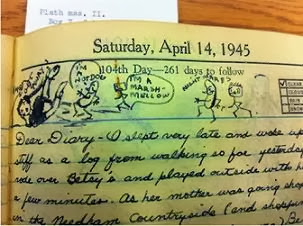 Plath mss. II.
Box
Saturday, April 14, 1945
104th Day—261 days to follow
I'M A MARSH-MELLOW
CLEAR
Dear Diary - I slept very late and woke up
stiff as a log from walking so far yesterday
rode over Betsy's and played outside with h
a few minutes. As her mother was going sho
in the Needham Countryside (and shopping